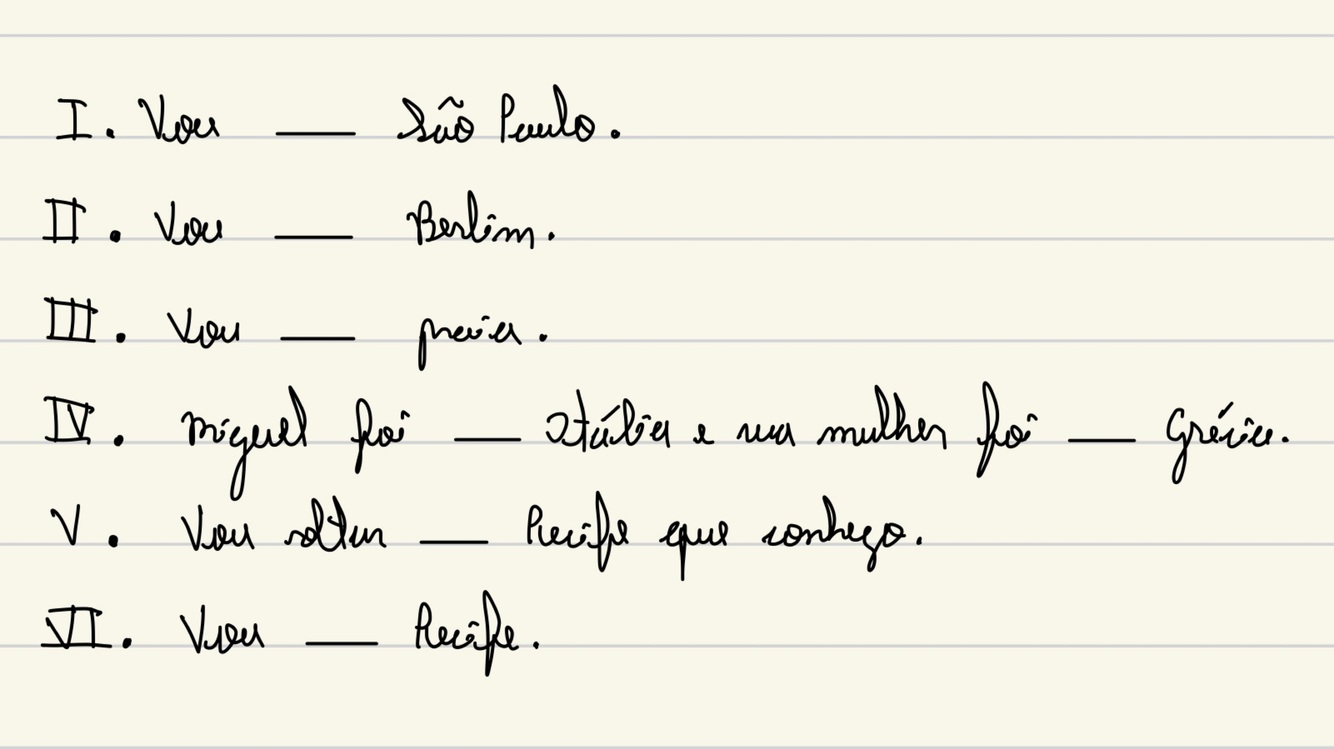 I. Vou ___ São Paulo.
II. Vou ___ Berlim.
III. Vou ___ praia.
IV. Miguel foi ___ Itália e sua mulher foi ___ Grécia.
V. Vou voltar ___ Recife que conheço.
VI. Vou ___ Recife.